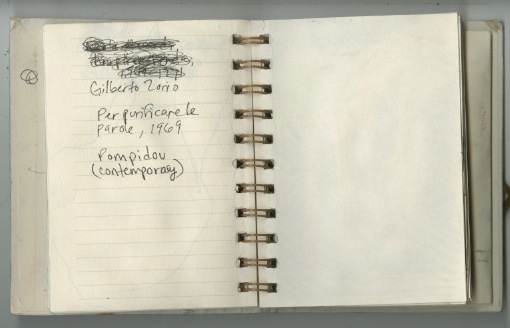 Gilberto Zorio
Per purificare le
parole, 1969
Pompidou
(contemporary)